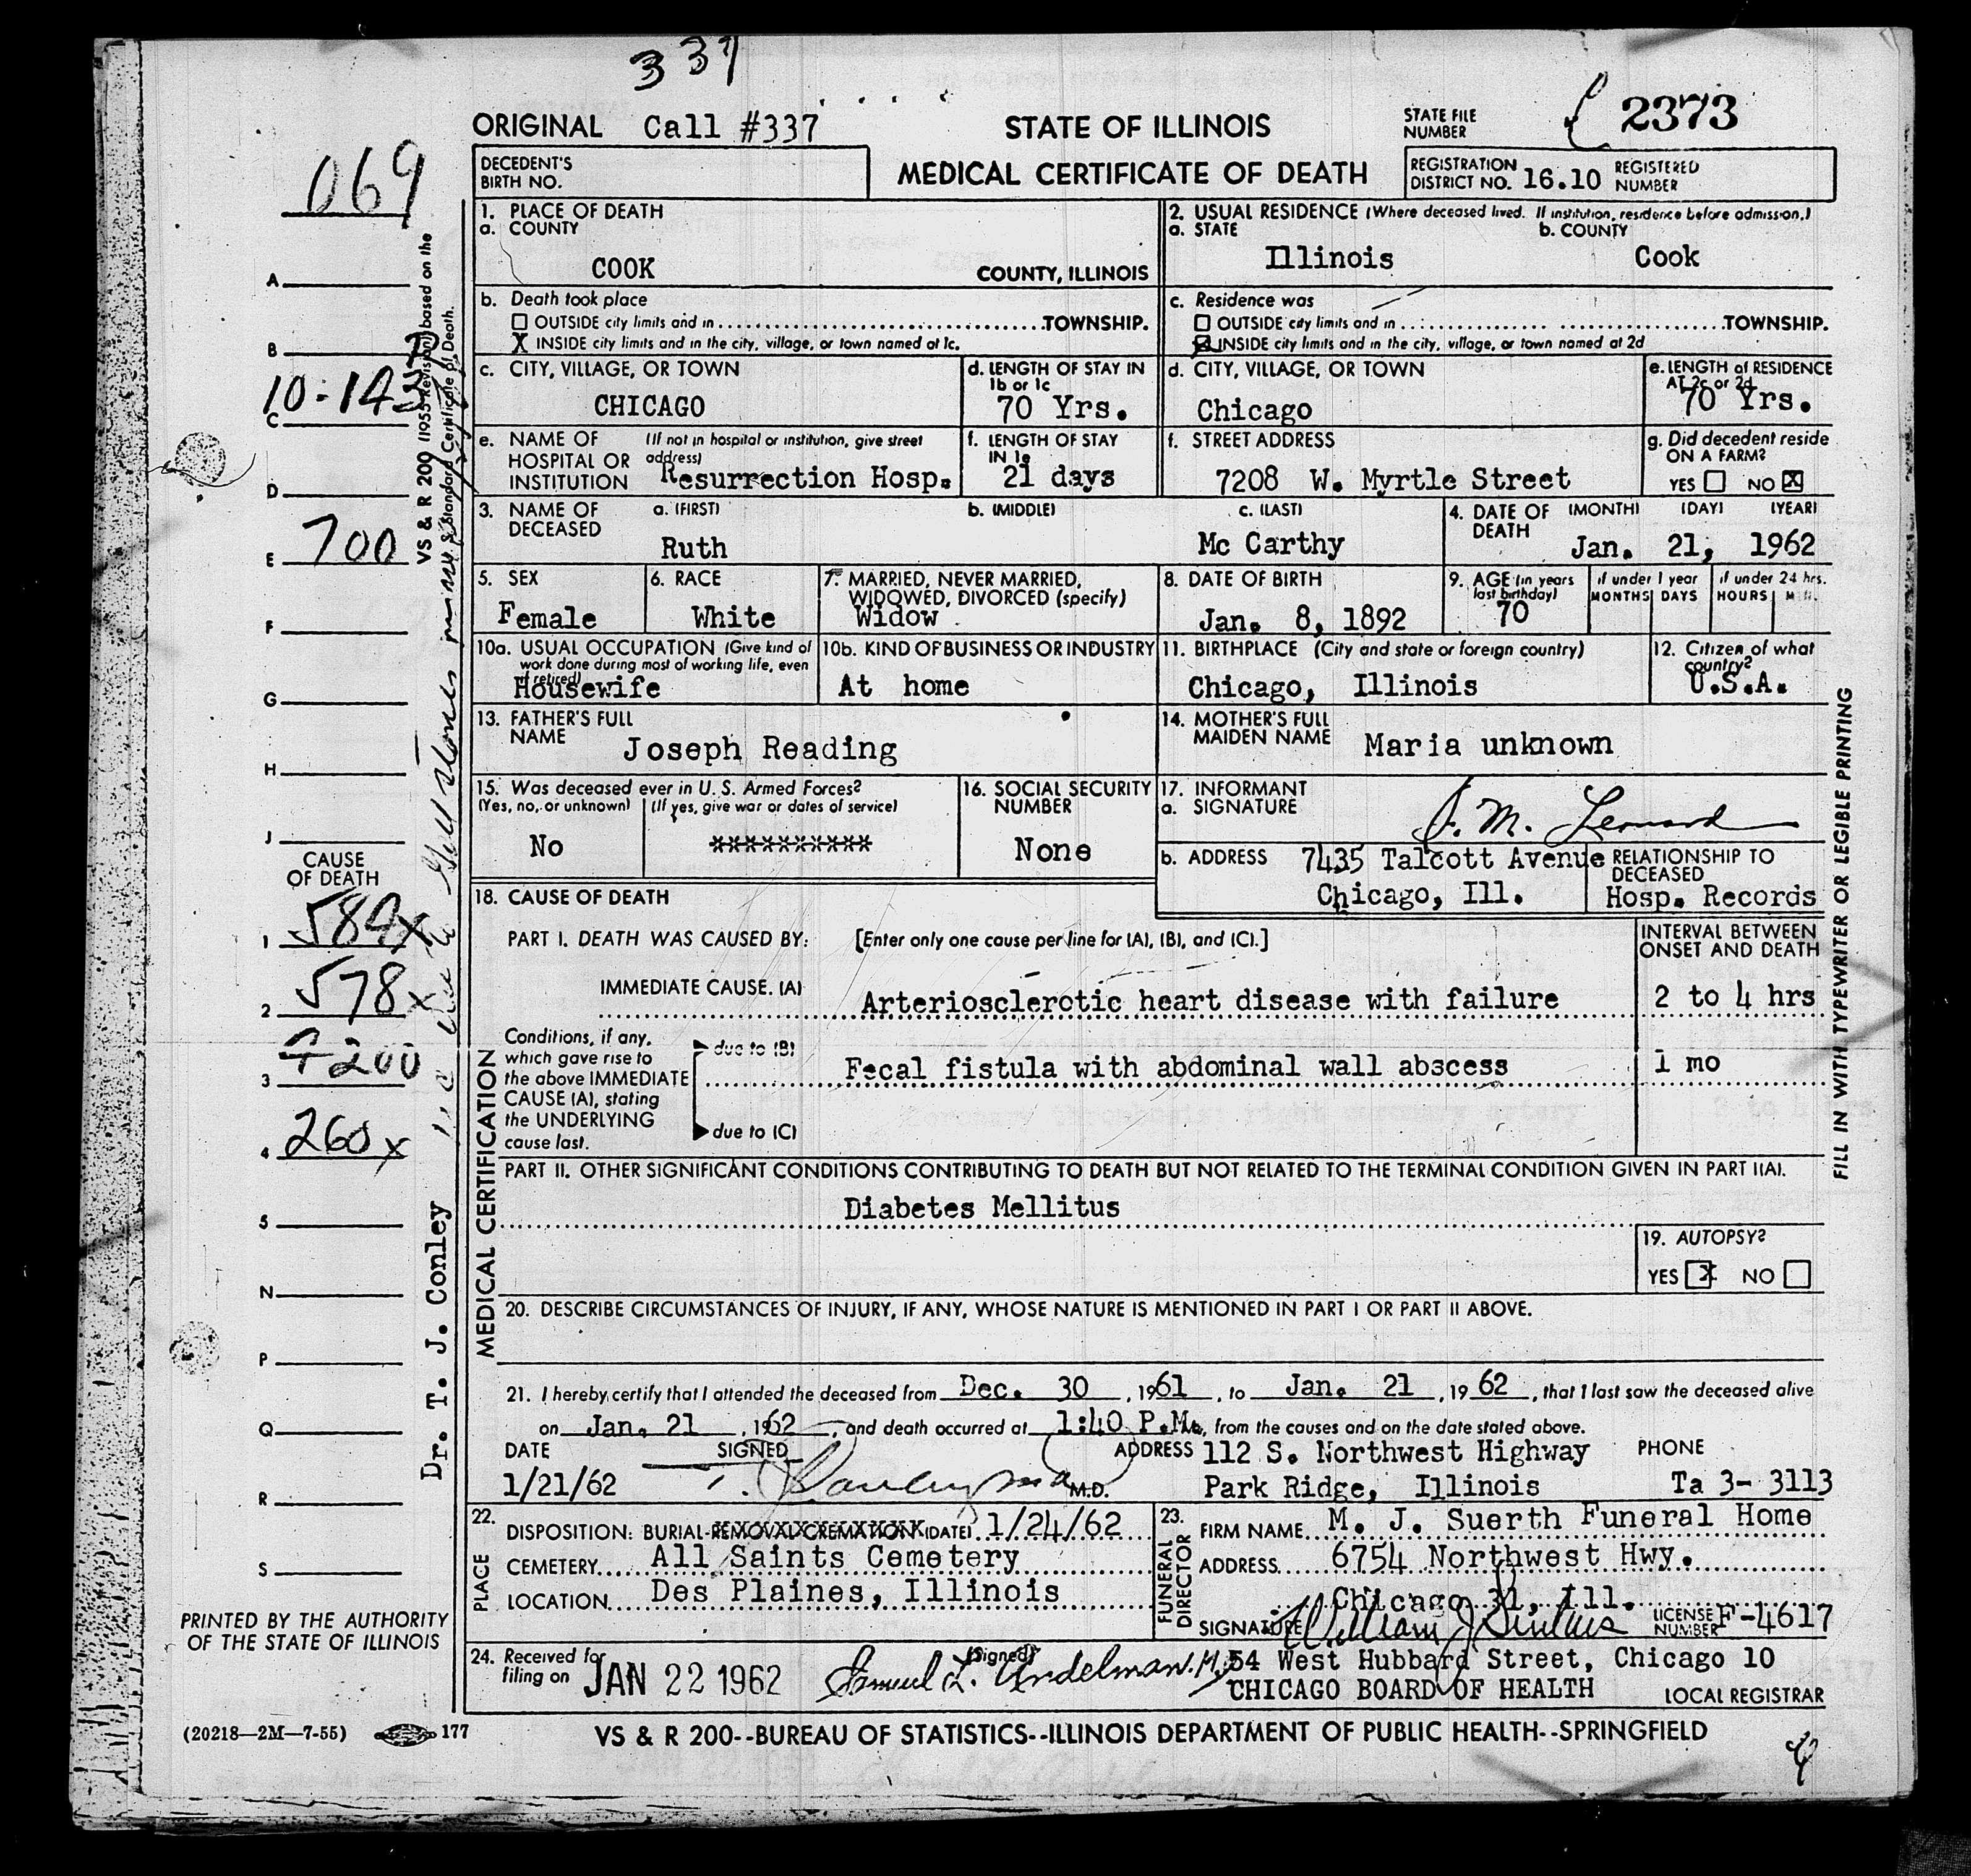 337
ORIGINAL Call #337
STATE OF ILLINOIS
STATE FILE NUMBER 2373
DECEDENT'S BIRTH NO.
MEDICAL CERTIFICATE OF DEATH
REGISTRATION DISTRICT NO. 16.10 REGISTERED NUMBER
069
1. PLACE OF DEATH
a. COUNTY
COOK COUNTY, ILLINOIS
2. USUAL RESIDENCE (Where deceased lived. If institution, residence before admission.)
a. STATE b. COUNTY
Illinois Cook
b. Death took place
OUTSIDE city limits and in TOWNSHIP.
X INSIDE city limits and in the city, village, or town named at 1c.
c. Residence was
OUTSIDE city limits and in TOWNSHIP.
INSIDE city limits and in the city, village, or town named at 2d
c. CITY, VILLAGE, OR TOWN
CHICAGO
d. LENGTH OF STAY IN 1b or 1c
70 Yrs.
d. CITY, VILLAGE, OR TOWN
Chicago
e. LENGTH of RESIDENCE AT 2c or 2d
70 Yrs.
e. NAME OF HOSPITAL OR INSTITUTION (If not in hospital or institution, give street address)
Resurrection Hosp.
f. LENGTH OF STAY IN 1e
21 days
f. STREET ADDRESS
7208 W. Myrtle Street
g. Did decedent reside ON A FARM?
YES NO X
3. NAME OF DECEASED a. (FIRST) b. (MIDDLE) c. (LAST)
Ruth Mc Carthy
4. DATE OF DEATH (MONTH) (DAY) (YEAR)
Jan. 21, 1962
5. SEX
Female
6. RACE
White
7. MARRIED, NEVER MARRIED, WIDOWED, DIVORCED (specify)
Widow
8. DATE OF BIRTH
Jan. 8, 1892
9. AGE (in years last birthday)
70
if under 1 year MONTHS DAYS
if under 24 hrs. HOURS
10a. USUAL OCCUPATION (Give kind of work done during most of working life, even if retired)
Housewife
10b. KIND OF BUSINESS OR INDUSTRY
At home
11. BIRTHPLACE (City and state or foreign country)
Chicago, Illinois
12. Citizen of what country?
U.S.A.
13. FATHER'S FULL NAME
Joseph Reading
14. MOTHER'S FULL MAIDEN NAME
Maria unknown
15. Was deceased ever in U. S. Armed Forces?
(Yes, no, or unknown) (If yes, give war or dates of service)
No **********
16. SOCIAL SECURITY NUMBER
None
17. INFORMANT
a. SIGNATURE
J. M. Leonard
b. ADDRESS 7435 Talcott Avenue
Chicago, Ill.
RELATIONSHIP TO DECEASED
Hosp. Records
18. CAUSE OF DEATH
PART I. DEATH WAS CAUSED BY: [Enter only one cause per line for (A), (B), and (C).]
INTERVAL BETWEEN ONSET AND DEATH
IMMEDIATE CAUSE. (A) Arteriosclerotic heart disease with failure 2 to 4 hrs
Conditions, if any, which gave rise to the above IMMEDIATE CAUSE (A), stating the UNDERLYING cause last.
due to (B) Fecal fistula with abdominal wall abscess 1 mo
due to (C)
PART II. OTHER SIGNIFICANT CONDITIONS CONTRIBUTING TO DEATH BUT NOT RELATED TO THE TERMINAL CONDITION GIVEN IN PART I(A).
Diabetes Mellitus
19. AUTOPSY?
YES X NO
20. DESCRIBE CIRCUMSTANCES OF INJURY, IF ANY, WHOSE NATURE IS MENTIONED IN PART I OR PART II ABOVE.
21. I hereby certify that I attended the deceased from Dec. 30, 1961, to Jan. 21, 1962, that I last saw the deceased alive
on Jan. 21, 1962, and death occurred at 1:40 P.M., from the causes and on the date stated above.
DATE SIGNED ADDRESS 112 S. Northwest Highway PHONE
1/21/62 M.D. Park Ridge, Illinois Ta 3- 3113
22. DISPOSITION: BURIAL-REMOVAL-CREMATION (DATE) 1/24/62
PLACE
CEMETERY All Saints Cemetery
LOCATION Des Plaines, Illinois
23. FUNERAL DIRECTOR
FIRM NAME M. J. Suerth Funeral Home
ADDRESS 6754 Northwest Hwy.
Chicago 31, Ill.
SIGNATURE William J LICENSE NUMBER F-4617
24. Received for filing on JAN 22 1962
(Signed) Samuel L. Andelman, M.D.
54 West Hubbard Street, Chicago 10
CHICAGO BOARD OF HEALTH LOCAL REGISTRAR
(20218—2M—7-55) 177
VS & R 200--BUREAU OF STATISTICS--ILLINOIS DEPARTMENT OF PUBLIC HEALTH--SPRINGFIELD
A
B
10-143
C
D
E 700
F
G
H
J
CAUSE OF DEATH
1 584x
2 578x
3 4200
4 260x
5
N
P
Q
R
S
PRINTED BY THE AUTHORITY
OF THE STATE OF ILLINOIS
VS & R 200 (1955 Revision) based on the
Standard Certificate of Death.
Dr. T. J. Conley
MEDICAL CERTIFICATION
FILL IN WITH TYPEWRITER OR LEGIBLE PRINTING